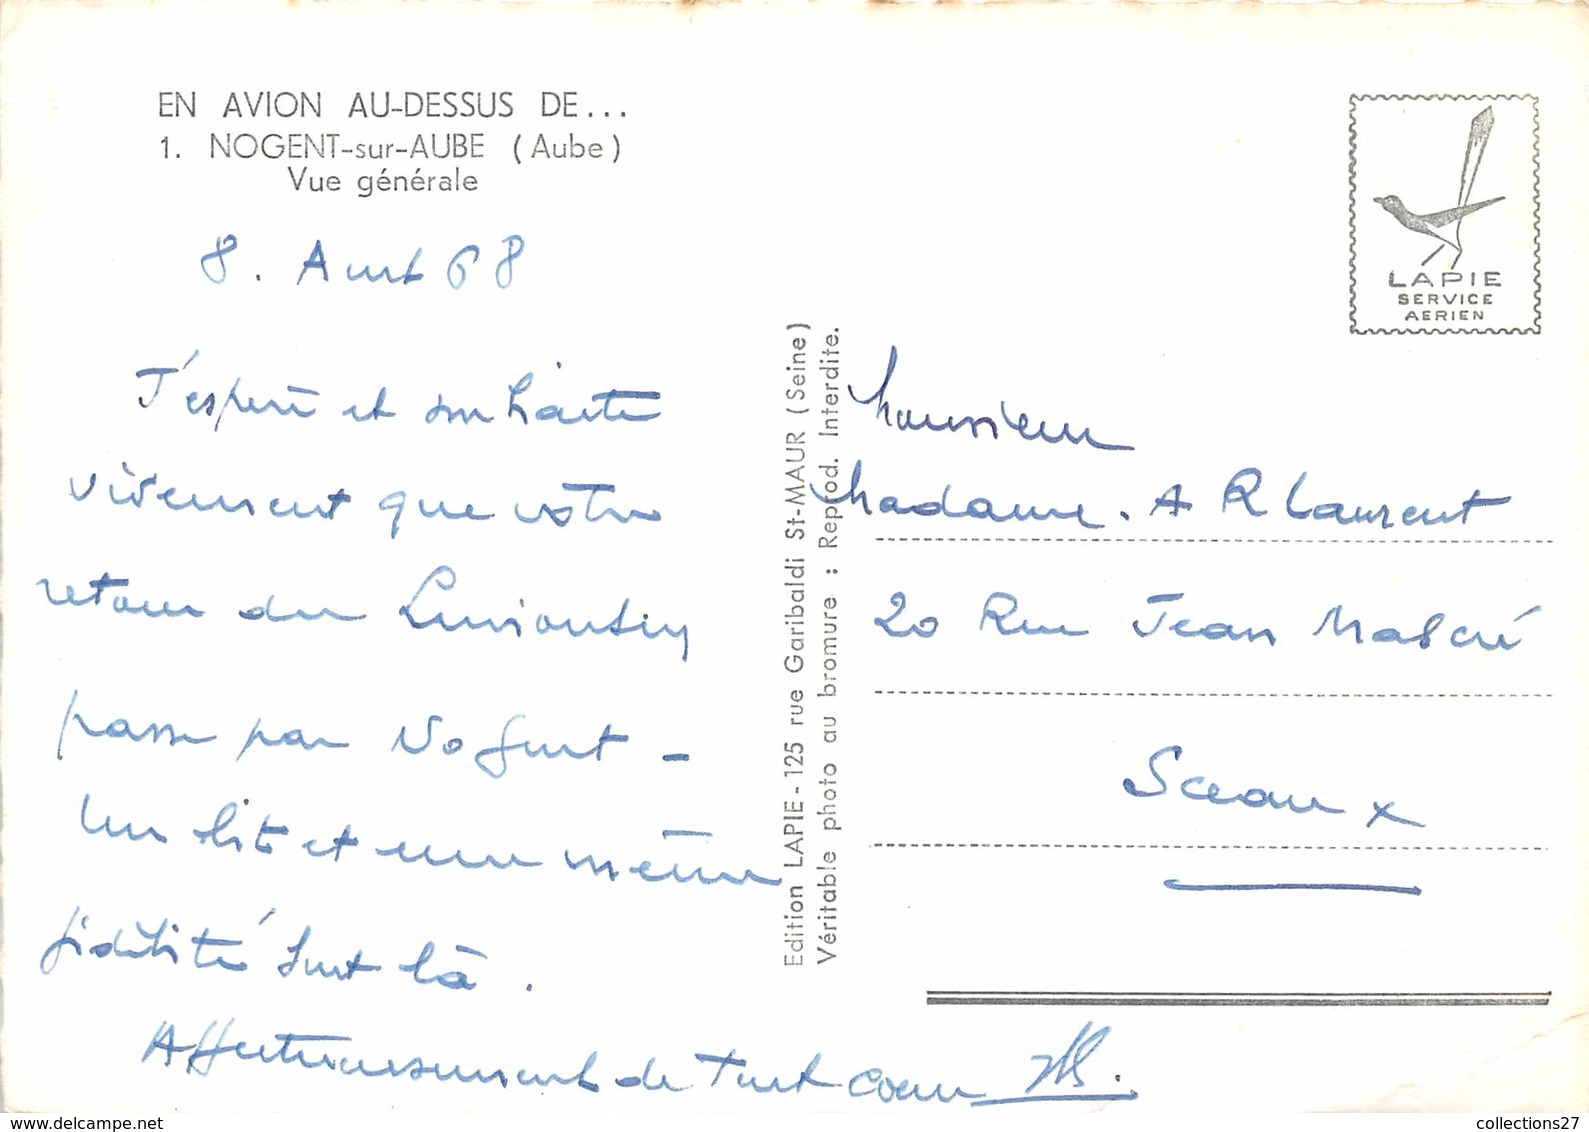 EN AVION AU-DESSUS DE...
1. NOGENT-sur-AUBE (Aube)
Vue générale
8. Aout 68
J'espère et souhaite
vivement que votre
retour du Limousin
passe par Nogent -
Un lit et une même
fidélité sont là.
Affectueusement de tout coeur
Edition LAPIE - 125 rue Garibaldi St-MAUR (Seine)
Véritable photo au bromure : Reprod. Interdite.
LAPIE
SERVICE
AERIEN
Monsieur
Madame. A R Laurent
20 Rue Jean Mascré
Sceaux
www.delcampe.net
collections27